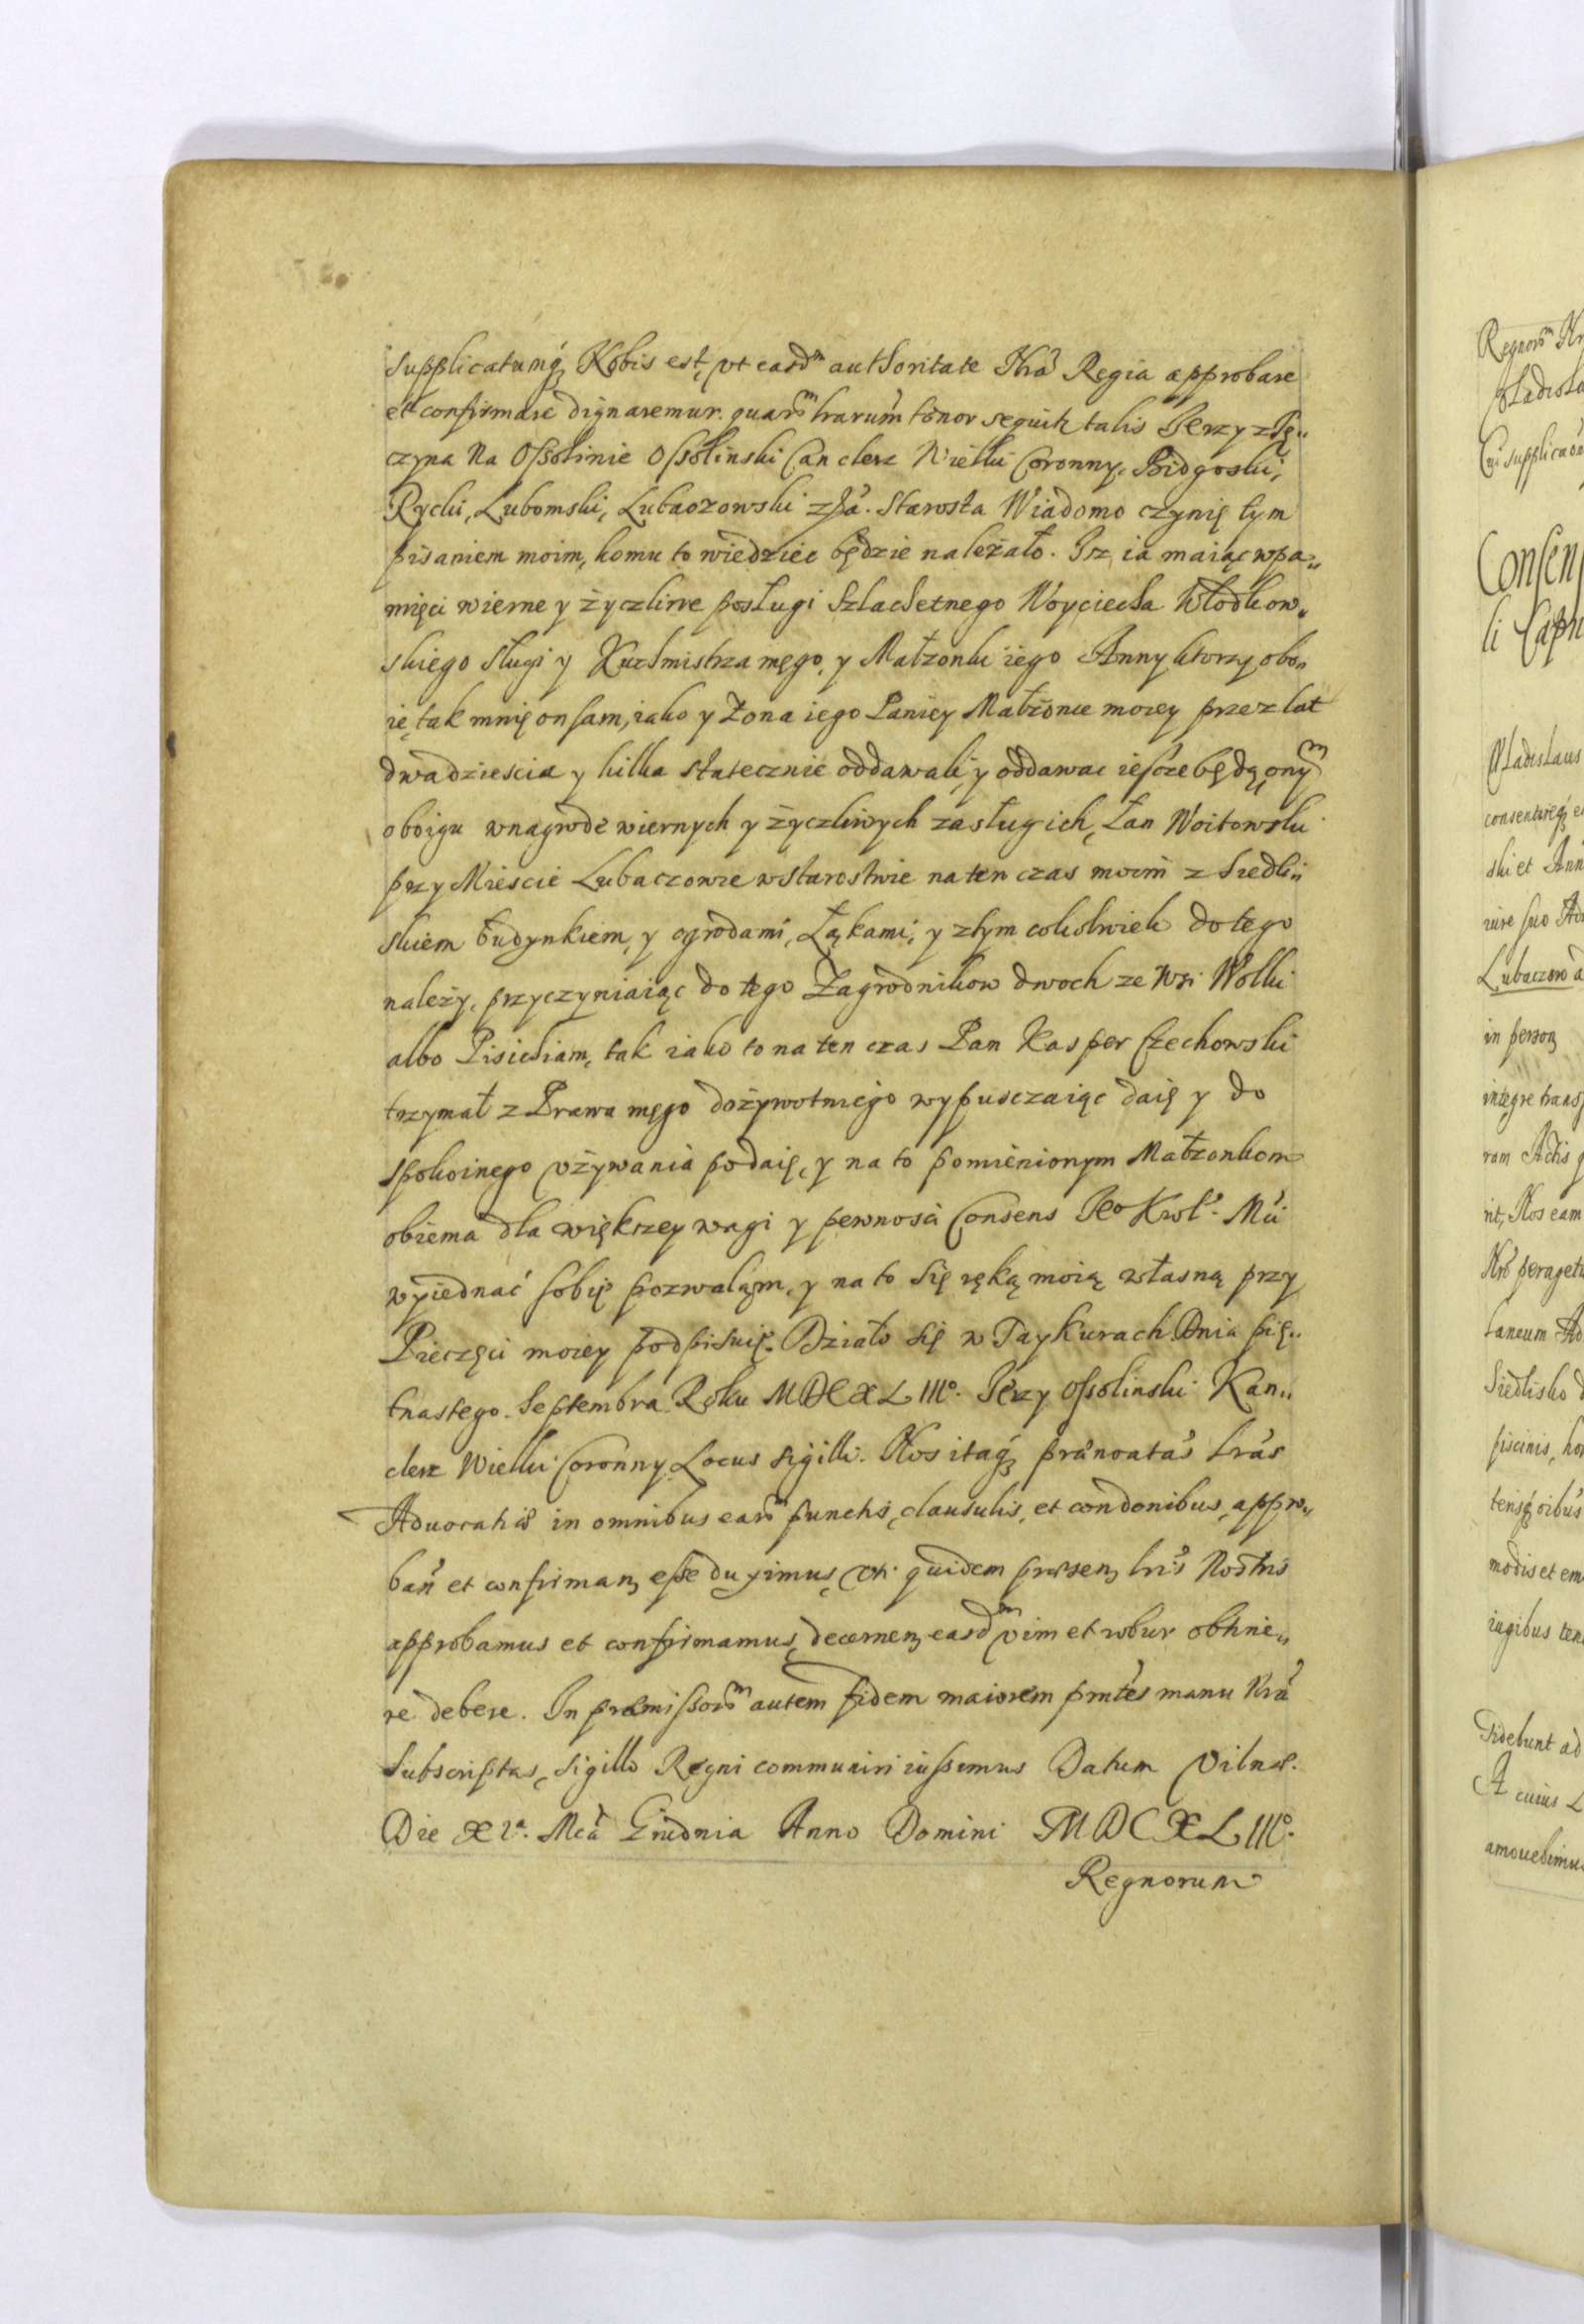 supplicatumq́ꝫ Nobis est, vt easdm authoritate Nrã Regia approbare
et confirmare dignaremur. quarm lrarum tenor sequitꝫ talis Jerzy z Tę„
czyna Na Ossolinie Ossolinski Canclerz Wielki Coronny, Bidgoski,
Rycki, Lubomski, Lubaczowski Starosta Wiadomo czynię tym
pisaniem moim, komu to wiedziec będzie należało. Isz ia maiąc w pa„
mięci wierne y życzliwe posługi Szlachetnego Woyciecha Włodkow„
skiego sługi y Kuchmistrza mego, y Małzonki iego Anny ktorzy obo„
ię, tak mnię on sam, iako y Zona iego Paniey Małżonce moiey przez lat
dwadziescia y kilka statecznie oddawali, y oddawac ieszcze będą, onym
oboigu w nagrodę wiernych y życzliwych zasług ich, Łan Woitowski
przy Miescie Lubaczowie w Starostwie na ten czas moim z Siedli„
skiem budynkiem, y ogrodami, Łąkami, y z tym cokolwiek do tego
należy, przyczyniaiąc do tego Zagrodnikow dwoch ze Wsi Wolki
albo Pisichiam, tak iako to na ten czas Pan Kasper Czechowski
trzymał z Prawa mego dożywotniego wypusczaiąc daię y do
spokoinego vżywania podaię, y na to pomienionym Małzonkom
obiema dla większey wagi y pewnosci Consens Jeo Krol. Mci
wyiednać sobię pozwalam, y na to się ręką moią własną przy
Pieczęci moiey podpisuię. Działo się w Taykurach Dnia pię„
tnastego Septembra Roku MDCXLIIIo. Jerzy Ossolinski Kan„
clerz Wielki Coronny. Locus Sigilli. Nos itaq́ꝫ prænoatas lras
Aduocatiæ in omnibus earm punctis, clausulis, et condonibus, appro„
ban et confirmanꝫ esse duximus, vti quidem præsenꝫ lris Nostris
approbamus et confirmamus, decernenꝫ easdm vim et robur obtine„
re debere. In præmissorm autem fidem maiorem pntes manu Nra
Subscriptas, Sigillo Regni communiri iussimus Datum Vilnæ.
Die Mca Grudnia Anno Domini MDCXLIIIo.
Regnorum